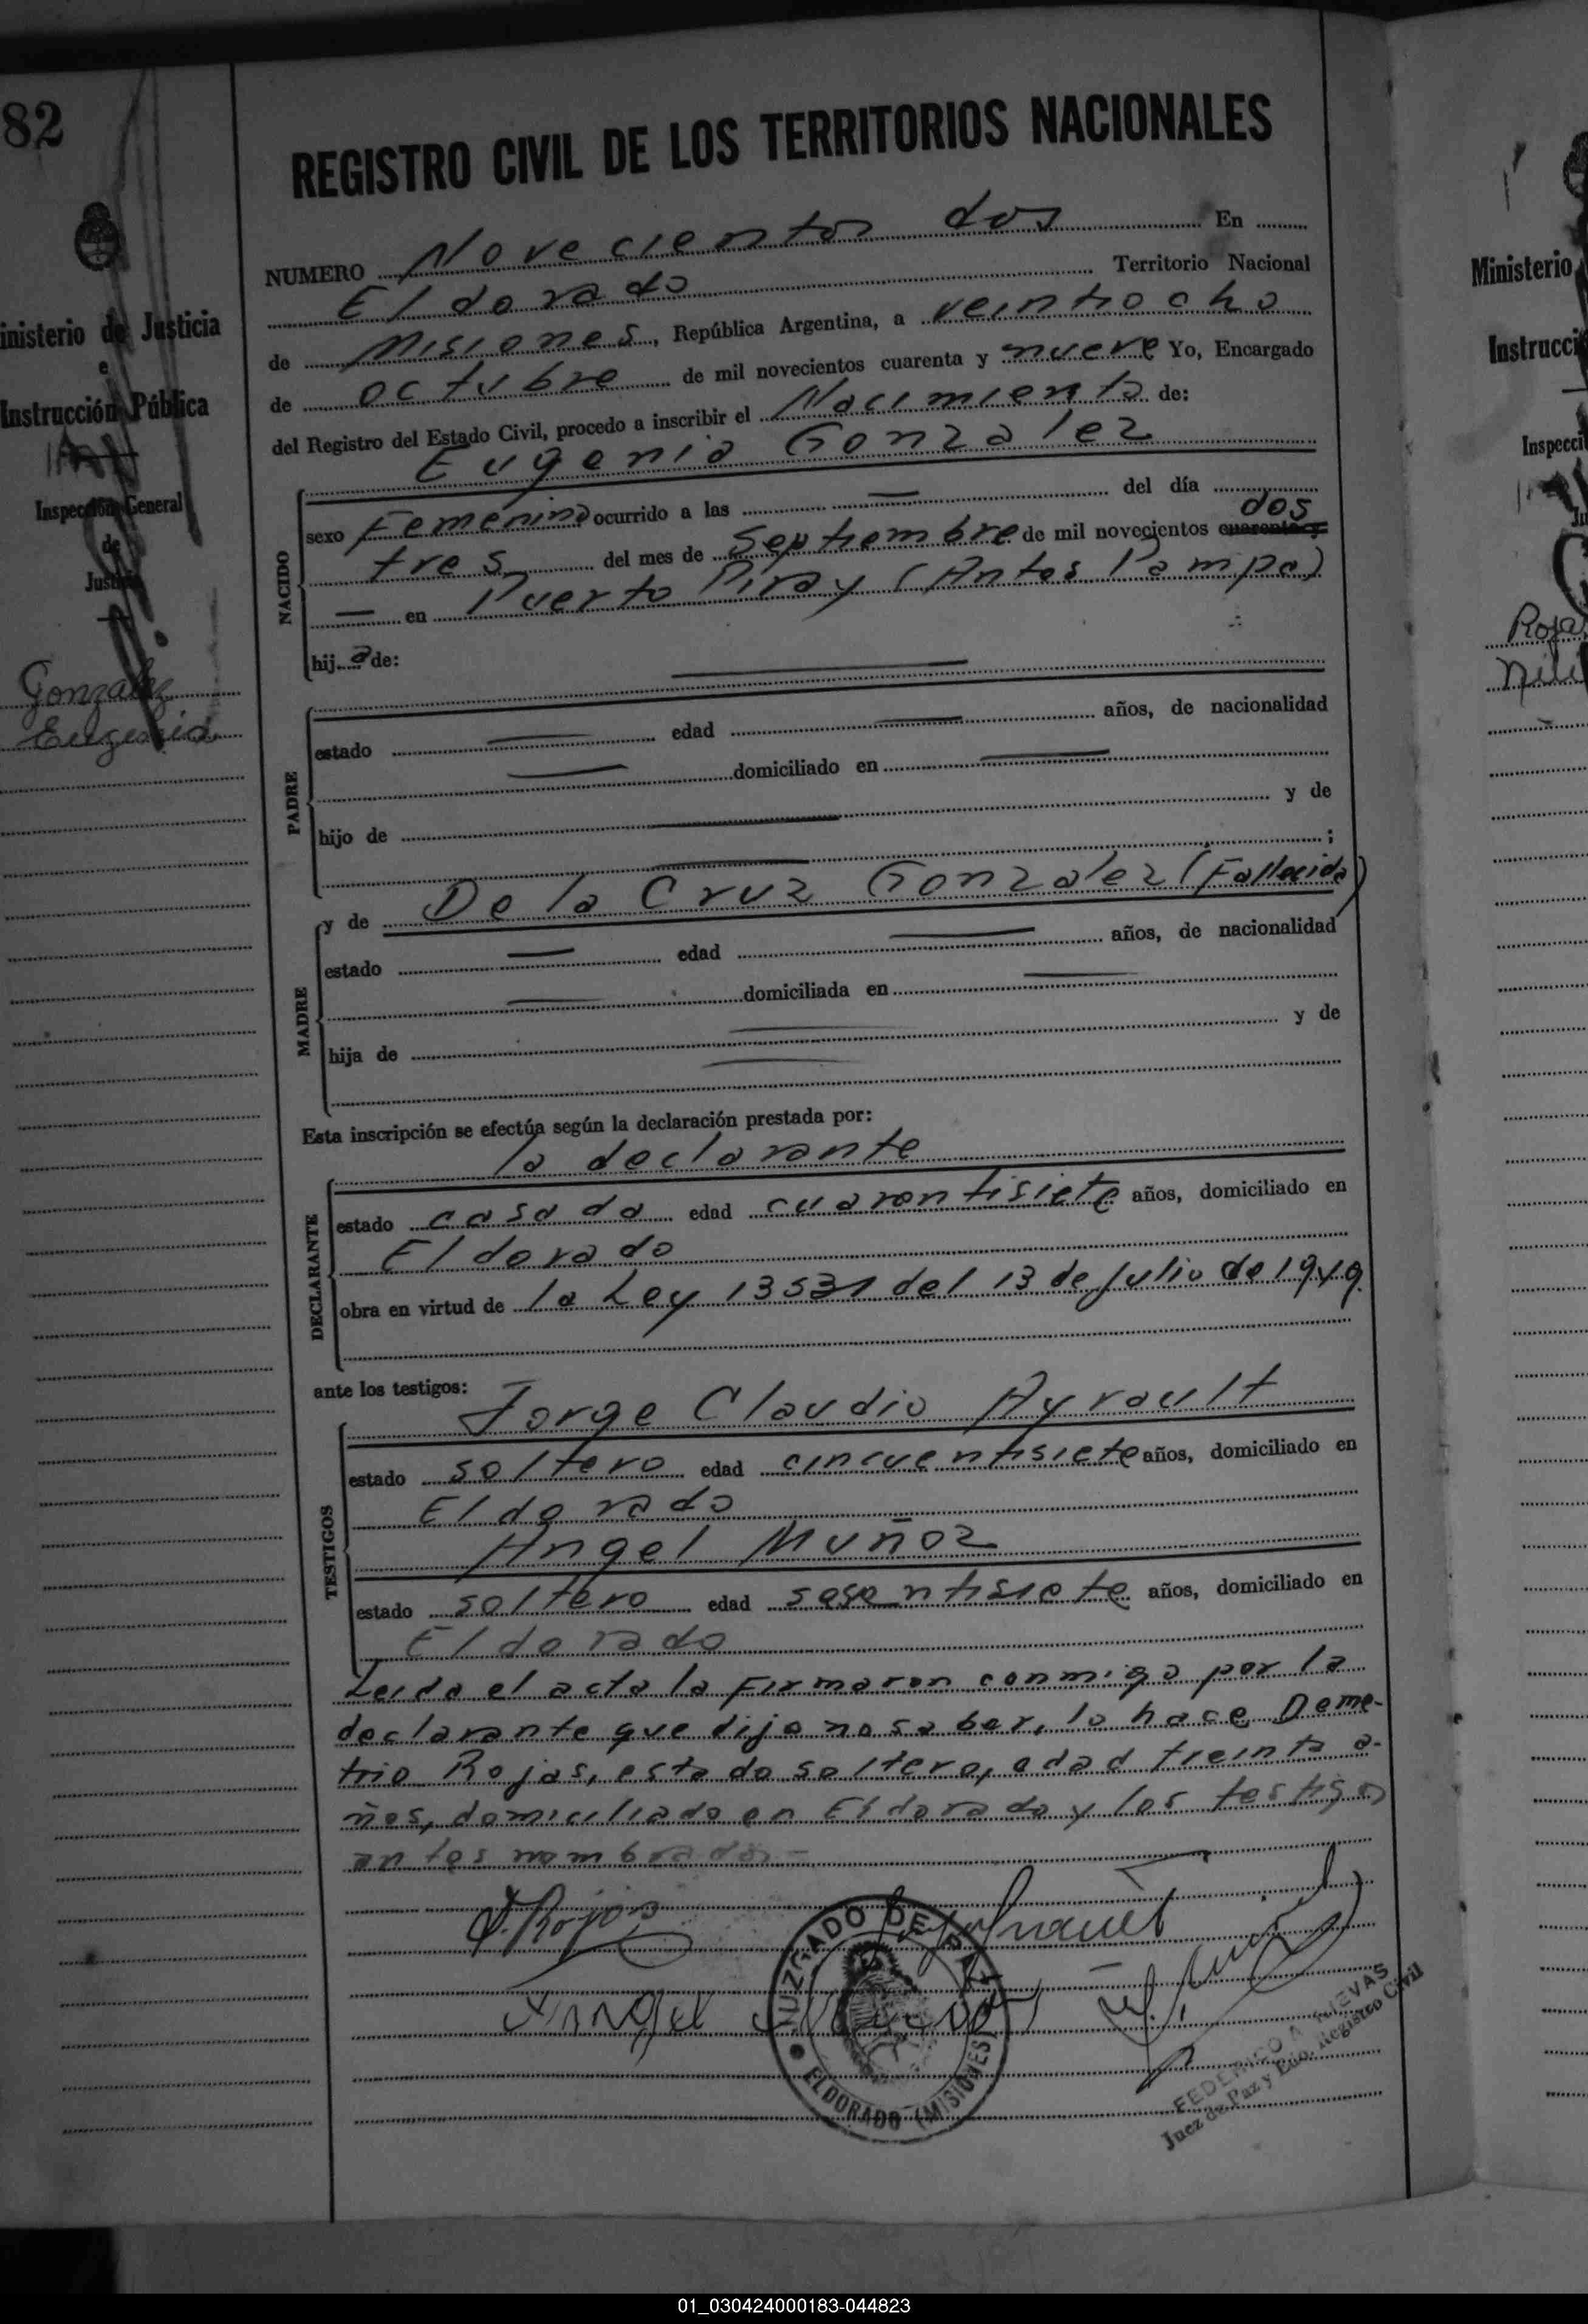 82
Ministerio de Justicia
e
Instrucción Pública
Inspección General
de
Justicia
Gonzalez
Eugenia
REGISTRO CIVIL DE LOS TERRITORIOS NACIONALES
NUMERO Novecientos dos En
Eldorado Territorio Nacional
de Misiones, República Argentina, a veintiocho
de octubre de mil novecientos cuarenta y nueve Yo, Encargado
del Registro del Estado Civil, procedo a inscribir el Nacimiento de:
Eugenia Gonzalez
NACIDO
sexo Femenino ocurrido a las — del día
tres del mes de Septiembre de mil novecientos cuarenta y dos
— en Puerto Piray (Antes Pampa)
hija de:
PADRE
—
estado — edad — años, de nacionalidad
— domiciliado en —
hijo de — y de
— ;
MADRE
y de De la Cruz Gonzalez (Fallecida)
estado — edad — años, de nacionalidad
— domiciliada en —
hija de — y de
—
Esta inscripción se efectúa según la declaración prestada por:
la declarante
DECLARANTE
estado casada edad cuarentisiete años, domiciliado en
Eldorado
obra en virtud de la Ley 13531 del 13 de Julio de 1949.
ante los testigos:
TESTIGOS
Jorge Claudio Ayrault
estado soltero edad cincuentisiete años, domiciliado en
Eldorado
Angel Muñoz
estado soltero edad sesentisiete años, domiciliado en
Eldorado
Leida el acta la Firmaron conmigo por la
declarante que dijo no saber, lo hace Deme-
trio Rojas, estado soltero, edad treinta a-
ños, domiciliado en Eldorado y los testigos
antes nombrados—
D. Rojas
Angel Muñoz
JUZGADO DE PAZ
ELDORADO (MISIONES)
FEDERICO A. NIEVAS
Juez de Paz y Edo. Registro Civil
Ministerio
Instrucci
Inspecci
Ju
Roja
Nili
01_030424000183-044823